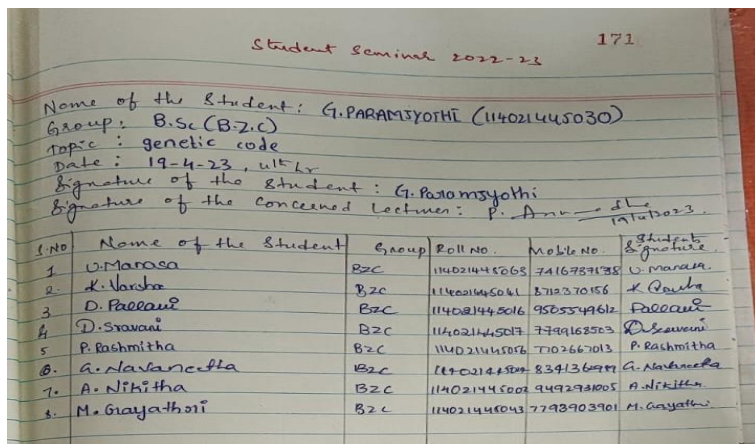 Student Seminar 2022-23
171
Name of the Student: G.PARAMJYOTHI (114021445030)
Group: B.Sc (B.Z.C)
Topic: genetic code
Date: 19-4-23, 4th hr
Signature of the student: G.Paramjyothi
Signature of the concerned lecturer: P.
19/4/2023.
S.NO Name of the Student Group Roll NO. Mobile No. Students Signature
1 U.Manasa BZC 114021445063 7416737138 U.manasa.
2. K.Varsha BZC 114021445041 8712370156 K
3 D.Pallavi BZC 114021445016 9505549612 Pallavi
4 D.Sravani BZC 114021445017 7799168503 D.Sravani
5 P.Rashmitha BZC 114021445056 7702667013 P.Rashmitha
6. G.Navaneetha BZC G.Navaneetha
7. A.Nikitha BZC 114021445002 9492931005 A.Nikitha
8. M.Gayathri BZC 114021445043 7793903901 M.Gayathri